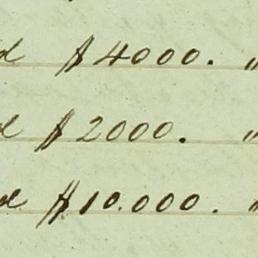 d $4000. "
d $2000. "
d $10.000. "